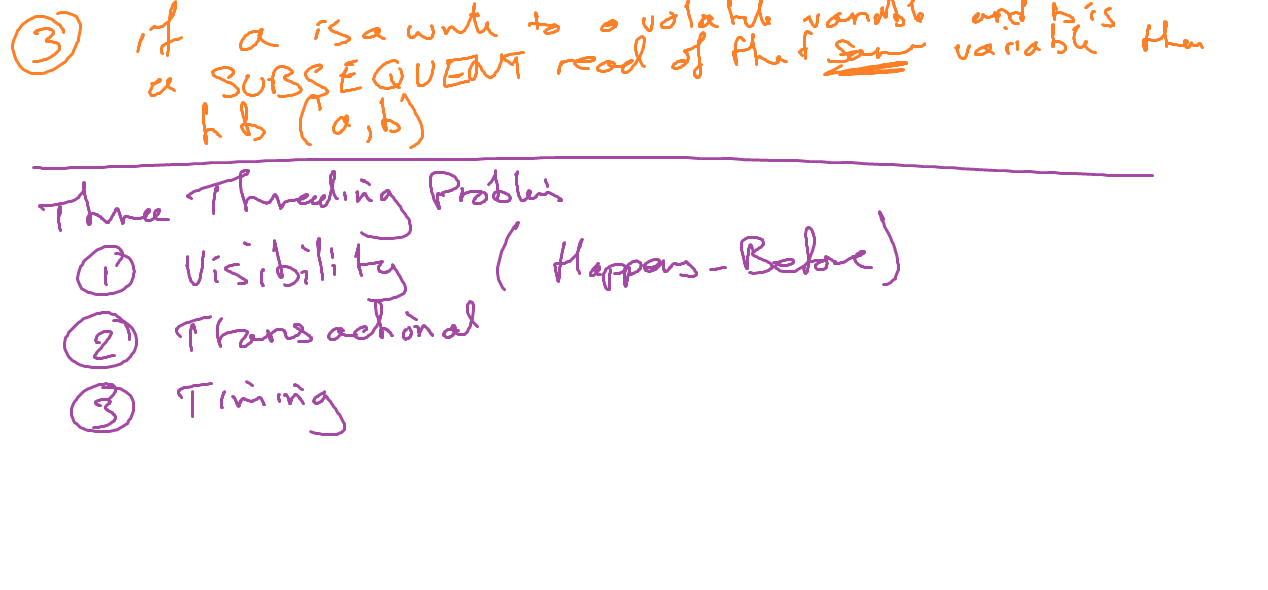 ③ if a is a write to a volatile variable and b is
a SUBSEQUENT read of that same variable then
hb (a,b)
Three Threading Problems
① Visibility (Happens-Before)
② Transactional
③ Timing